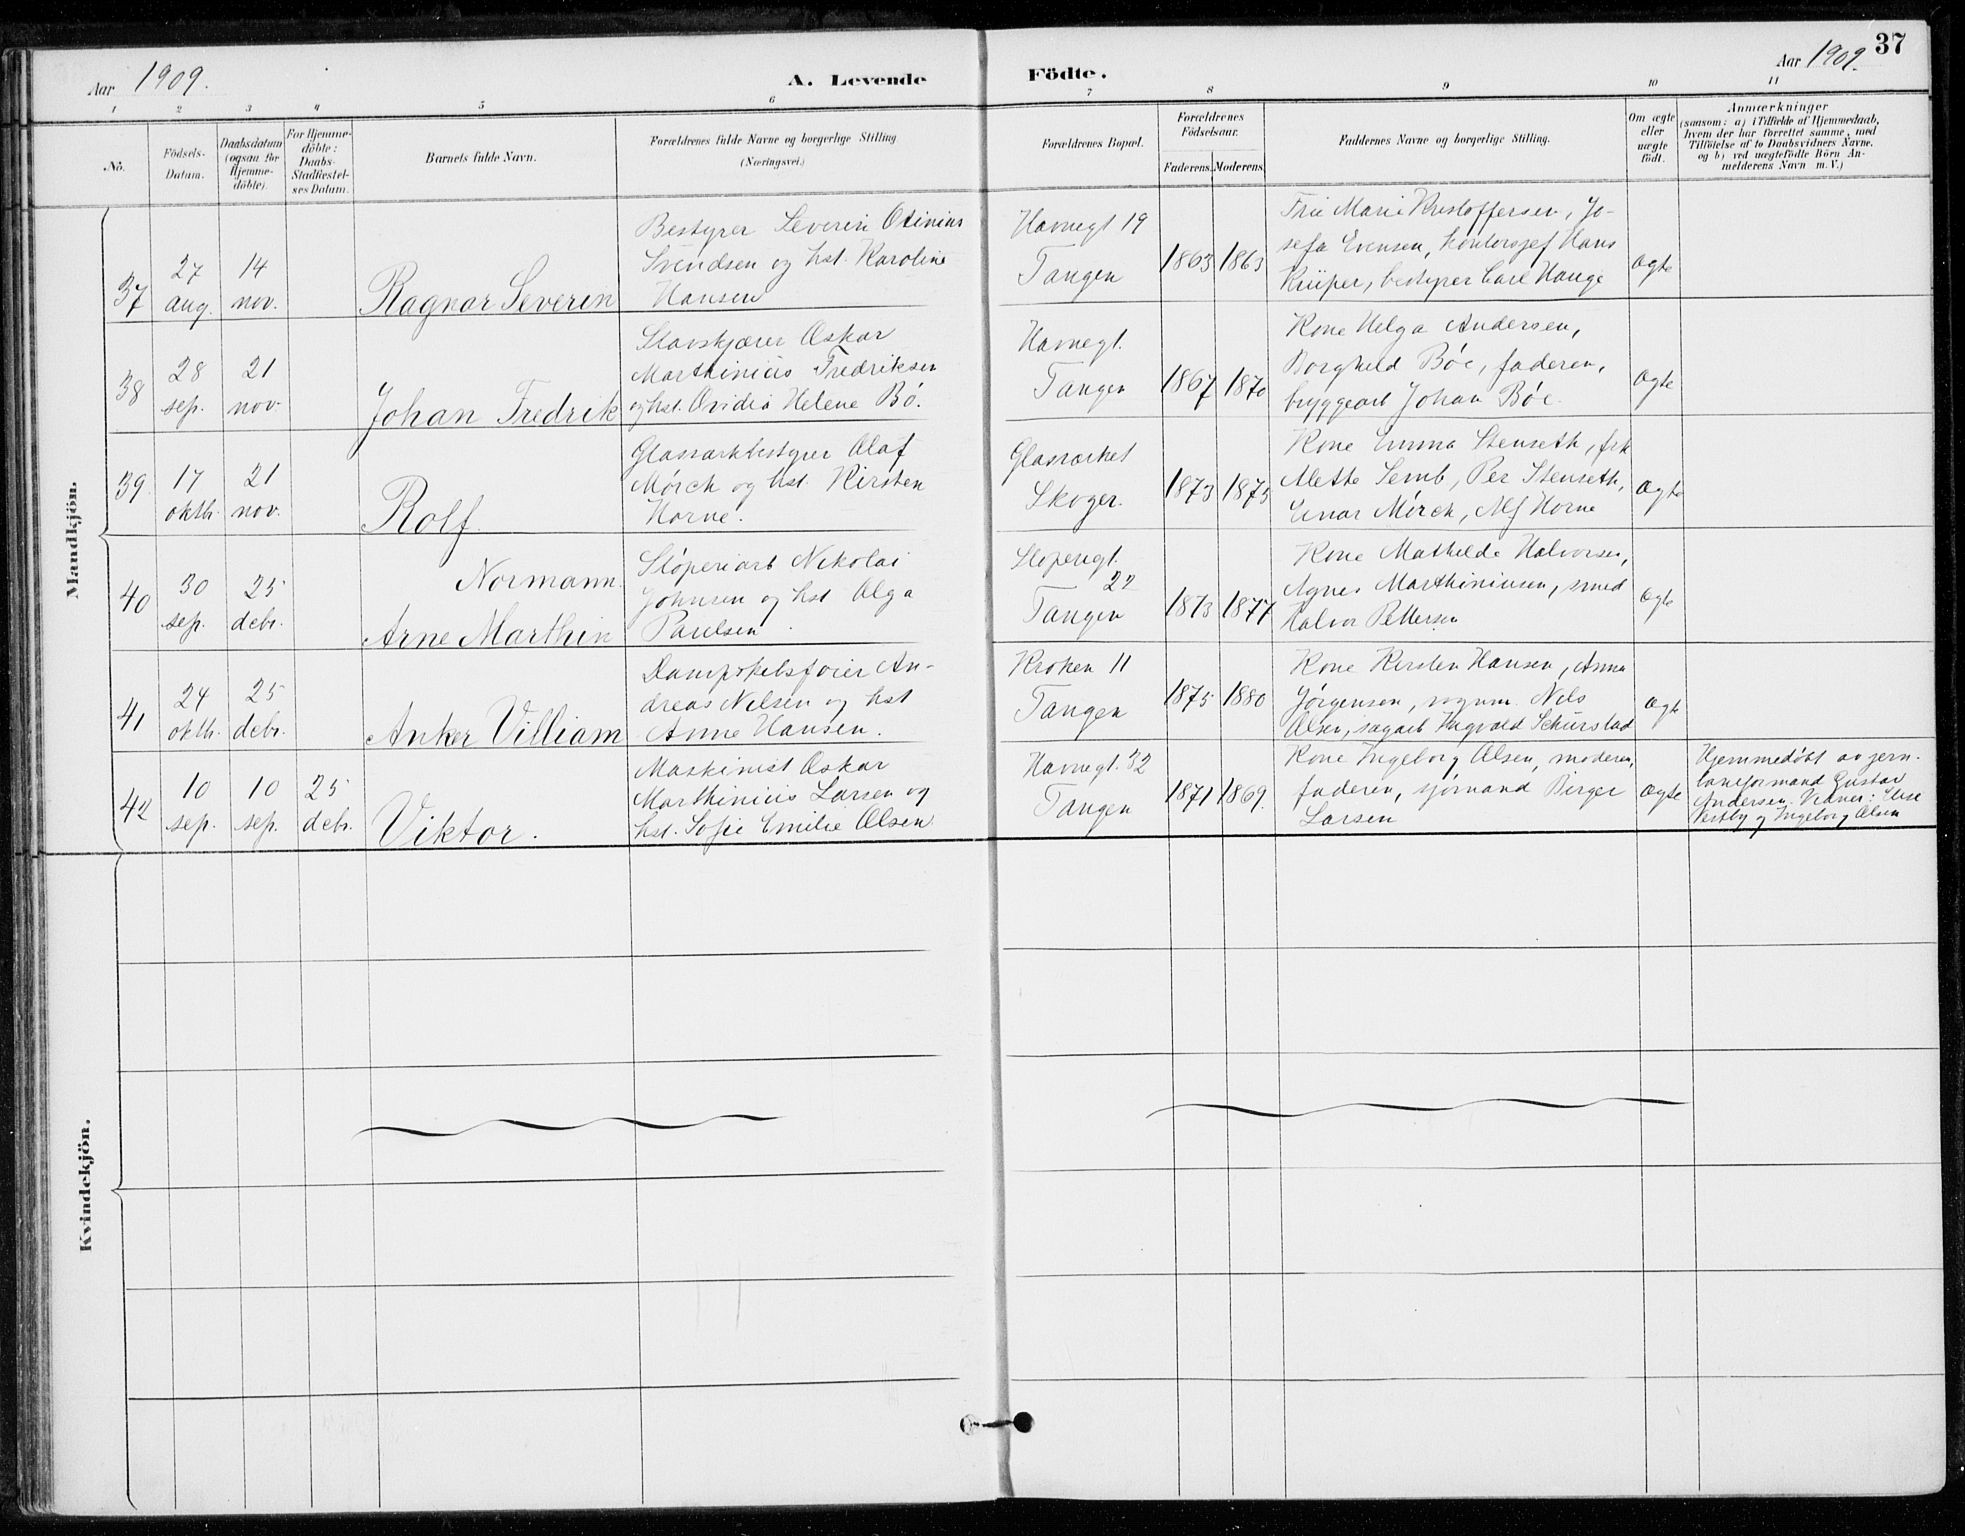 37
Aar 1909.
A. Levende
Födte.
Aar 1909.
1 2 3 4 5 6 7 8 9 10 11
No.
Födsels-
Datum.
Daabsdatum
(ogsaa for
Hjemme-
döbte).
For Hjemme-
döbte:
Daabs-
Stadfæstel-
ses Datum.
Barnets fulde Navn.
Forældrenes fulde Navne og borgerlige Stilling
(Næringsvei.)
Forældrenes Bopæl.
Forældrenes
Födselsaar.
Faderens. Moderens.
Faddernes Navne og borgerlige Stilling.
Om ægte
eller
uægte
födt.
Anmærkninger
(saasom: a) i Tilfælde af Hjemmedaab,
hvem der har forrettet samme, med
Tilföielse af to Daabsvidners Navne,
og b) ved uægtefödte Börn An-
melderens Navn m. V.)
Mandkjön.
37
27
aug.
14
nov.
Ragnar Severin
Bestyrer Severin Otinius
Svendsen og hst. Karoline
Hansen
Havnegt 19
Tangen
1863 1863
Marie Kristoffersen, Jo-
sefa Evensen, kontorsjef Hans
Küiper, bestyrer Carl Hauge
ægte
38
28
sep.
21
nov.
Johan Fredrik
Oskar
Marthinius Fredriksen
og hst. Ovidia Helene Bö.
Havnegt.
Tangen
1867 1870
Kone Helga Andersen,
Borghild Böe, faderen,
bryggearb Johan Böe.
ægte
39
17
oktb.
21
nov.
Rolf.
Glasværkbestyrer Olaf
Mörch og hst. Kirsten
Horne.
Glasværket
Skoger.
1873 1875
Kone Emma Stenseth, frk
Alette Semb, Per Stenseth,
Einar Mörch, Alf Horne
ægte
40
30
sep.
25
debr.
Normann
Arne Marthin
Slöperiarb Nikolai
Johnsen og hst Olga
Paulsen.
Slöperigt.
22
Tangen
1873 1877
Kone Mathilde Halvorsen,
Agnes Marthiniusen, smed
Halvor Pettersen
ægte
41
24
oktb.
25
debr.
Anker Villiam
Dampskibsfører An-
dreas Nilsen og hst
Anne Hansen.
Kroken 11
Tangen
1875 1880
Kone Kirsten Hansen, Anna
Jörgensen, vognm. Nils
Olsen, sagarb Ingvald
ægte
42
10
sep.
10
sep.
25
debr.
Viktor.
Maskinist Oskar
Marthinius Larsen og
hst. Sofie Emilie Olsen
Havnegt. 32
Tangen
1871 1869.
Kone Ingeborg Olsen, moderen,
faderen, sjömand Birger
Larsen
ægte
Hjemmedöbt av jern-
baneformand Gustav
Andersen. Vidner: Else
Vestby og Ingeborg Olsen
Kvindekjön.